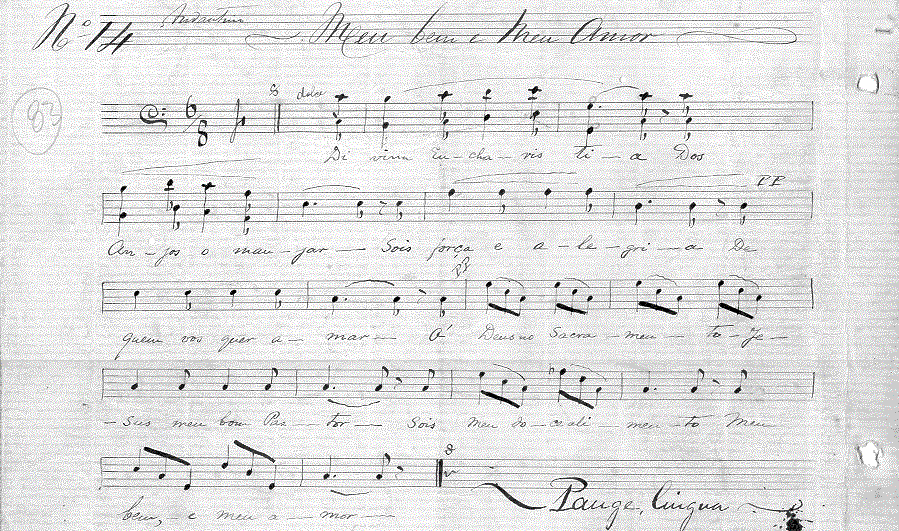 Nº 14 Andantino Meu bem e Meu Amor
83
6/8 dolce
Di vina Eu-cha-ris ti-a Dos
PP
An-jos o man-jar- Sois força e a-le-gri-a De
quem vos quer a-mar- Ó Deus no Sacra-men-to Je-
-sus meu bom Pas-tor- Sois meu do-ce ali-men-to Meu
bem, -e meu a-mor-
Pange, lingua